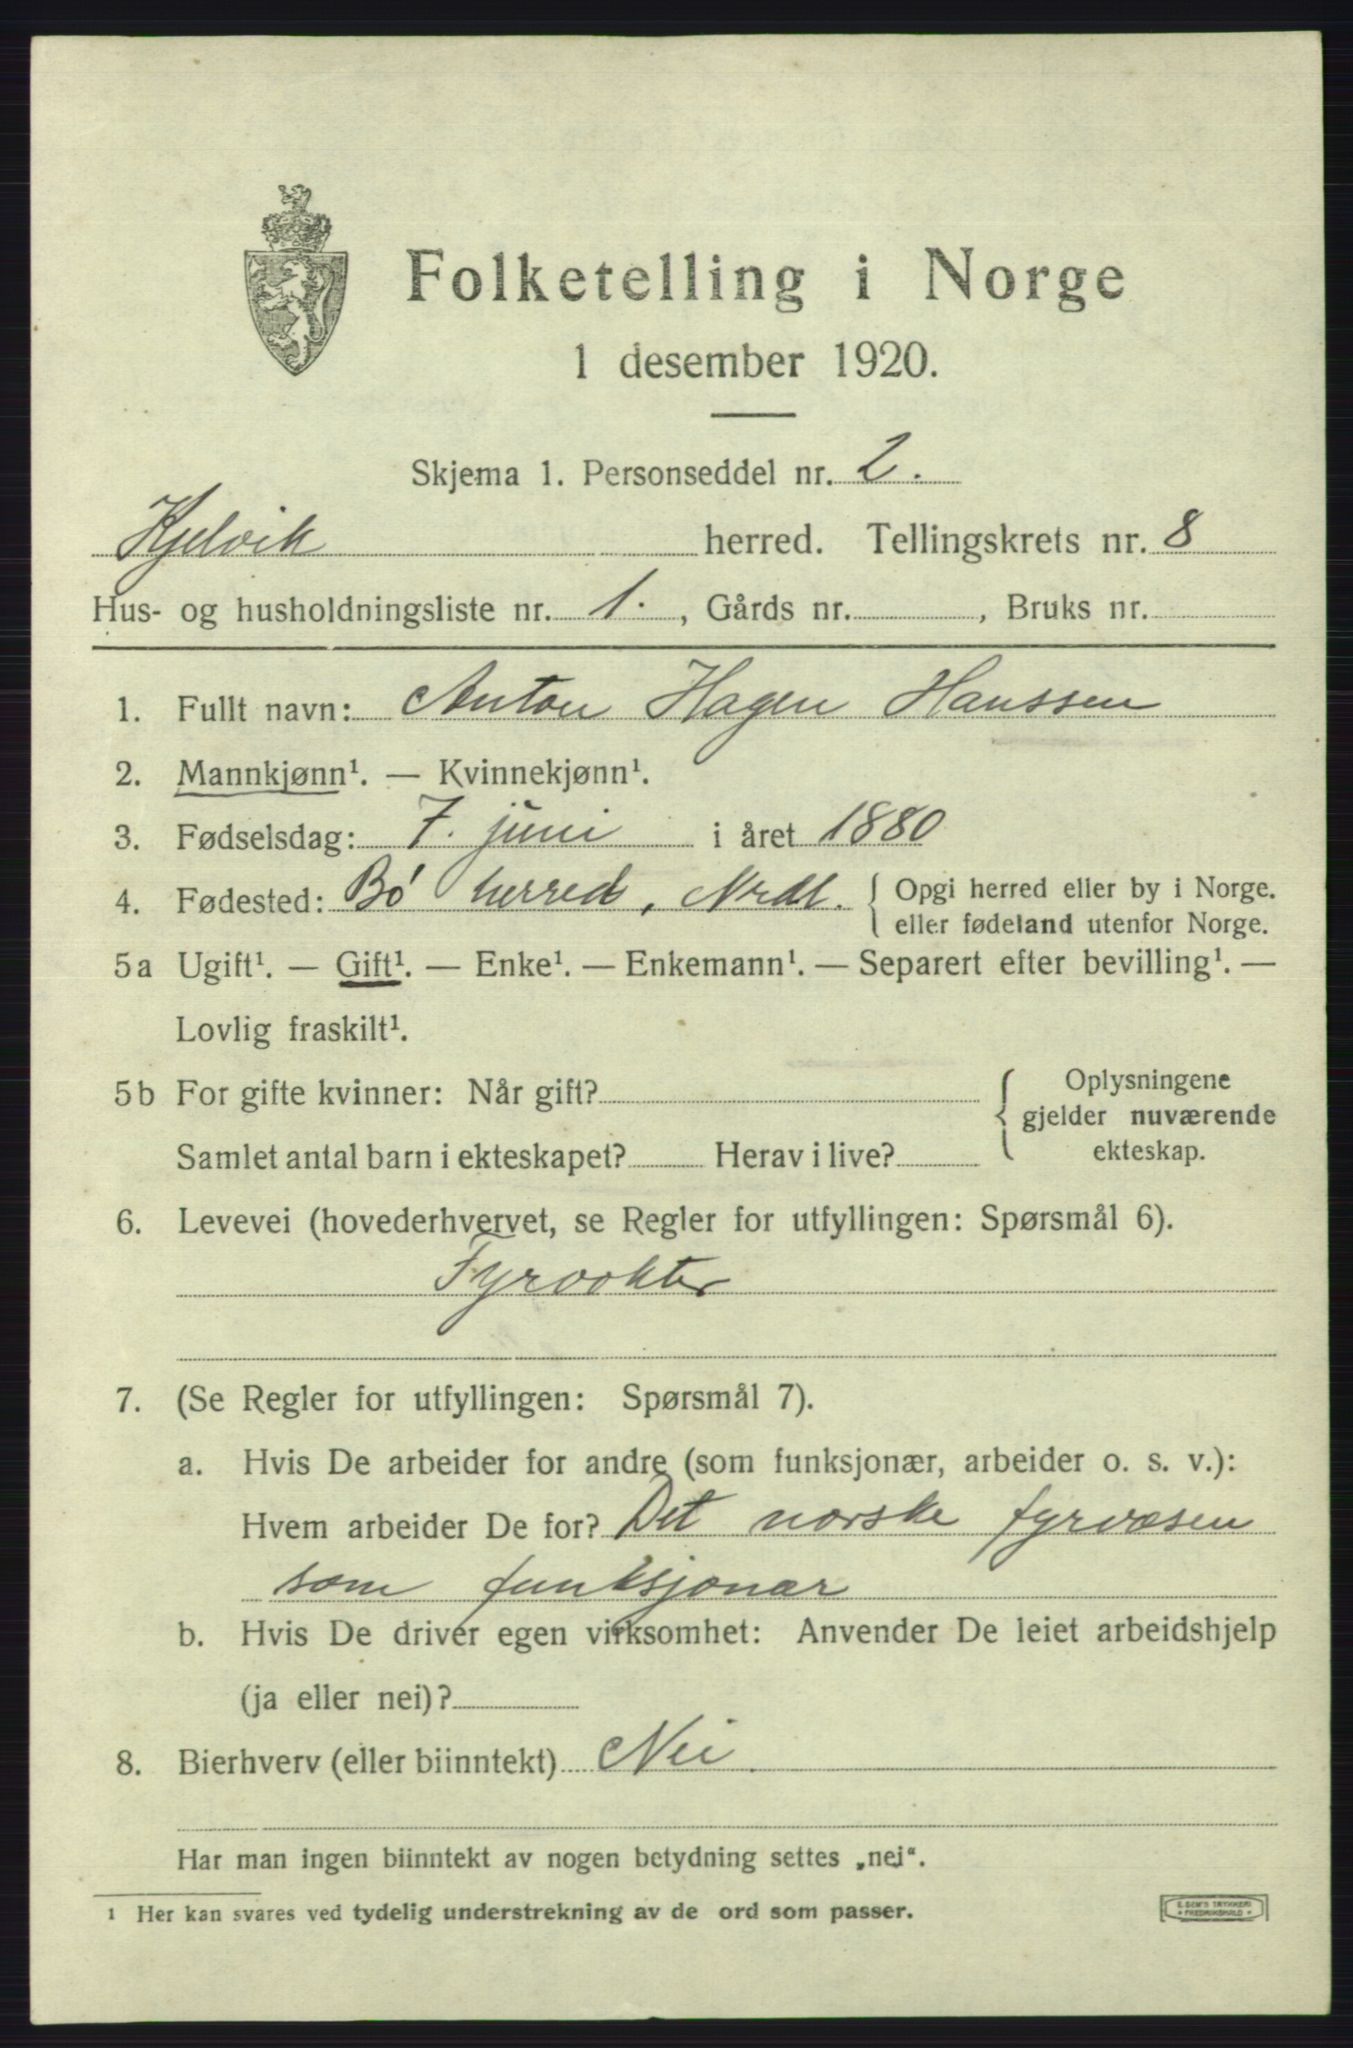 Folketelling i Norge
1 desember 1920.
Skjema 1. Personseddel nr. 2.
Kjelvik herred. Tellingskrets nr. 8
Hus- og husholdningsliste nr. 1. , Gårds nr. , Bruks nr.
1. Fullt navn: Anton Hagen Hanssen
2. Mannkjønn¹. — Kvinnekjønn¹.
3. Fødselsdag: 7. juni i året 1880
4. Fødested: Bø herred, Nrdl. { Opgi herred eller by i Norge.
eller fødeland utenfor Norge.
5a Ugift¹. — Gift¹. — Enke¹. — Enkemann¹. — Separert efter bevilling¹. —
Lovlig fraskilt¹.
5b For gifte kvinner: Når gift?
Samlet antal barn i ekteskapet? Herav i live?
{ Oplysningene
gjelder nuværende
ekteskap.
6. Levevei (hovederhvervet, se Regler for utfyllingen: Spørsmål 6).
Fyrvokter
7. (Se Regler for utfyllingen: Spørsmål 7).
a. Hvis De arbeider for andre (som funksjonær, arbeider o. s. v.):
Hvem arbeider De for? Det norske fyrvæsen
som funksjonær
b. Hvis De driver egen virksomhet: Anvender De leiet arbeidshjelp
(ja eller nei)?
8. Bierhverv (eller biinntekt) Nei.
Har man ingen biinntekt av nogen betydning settes „nei“.
1 Her kan svares ved tydelig understrekning av de ord som passer.
E. SEM'S TRYKKERI
• FREDRIKSHALD •